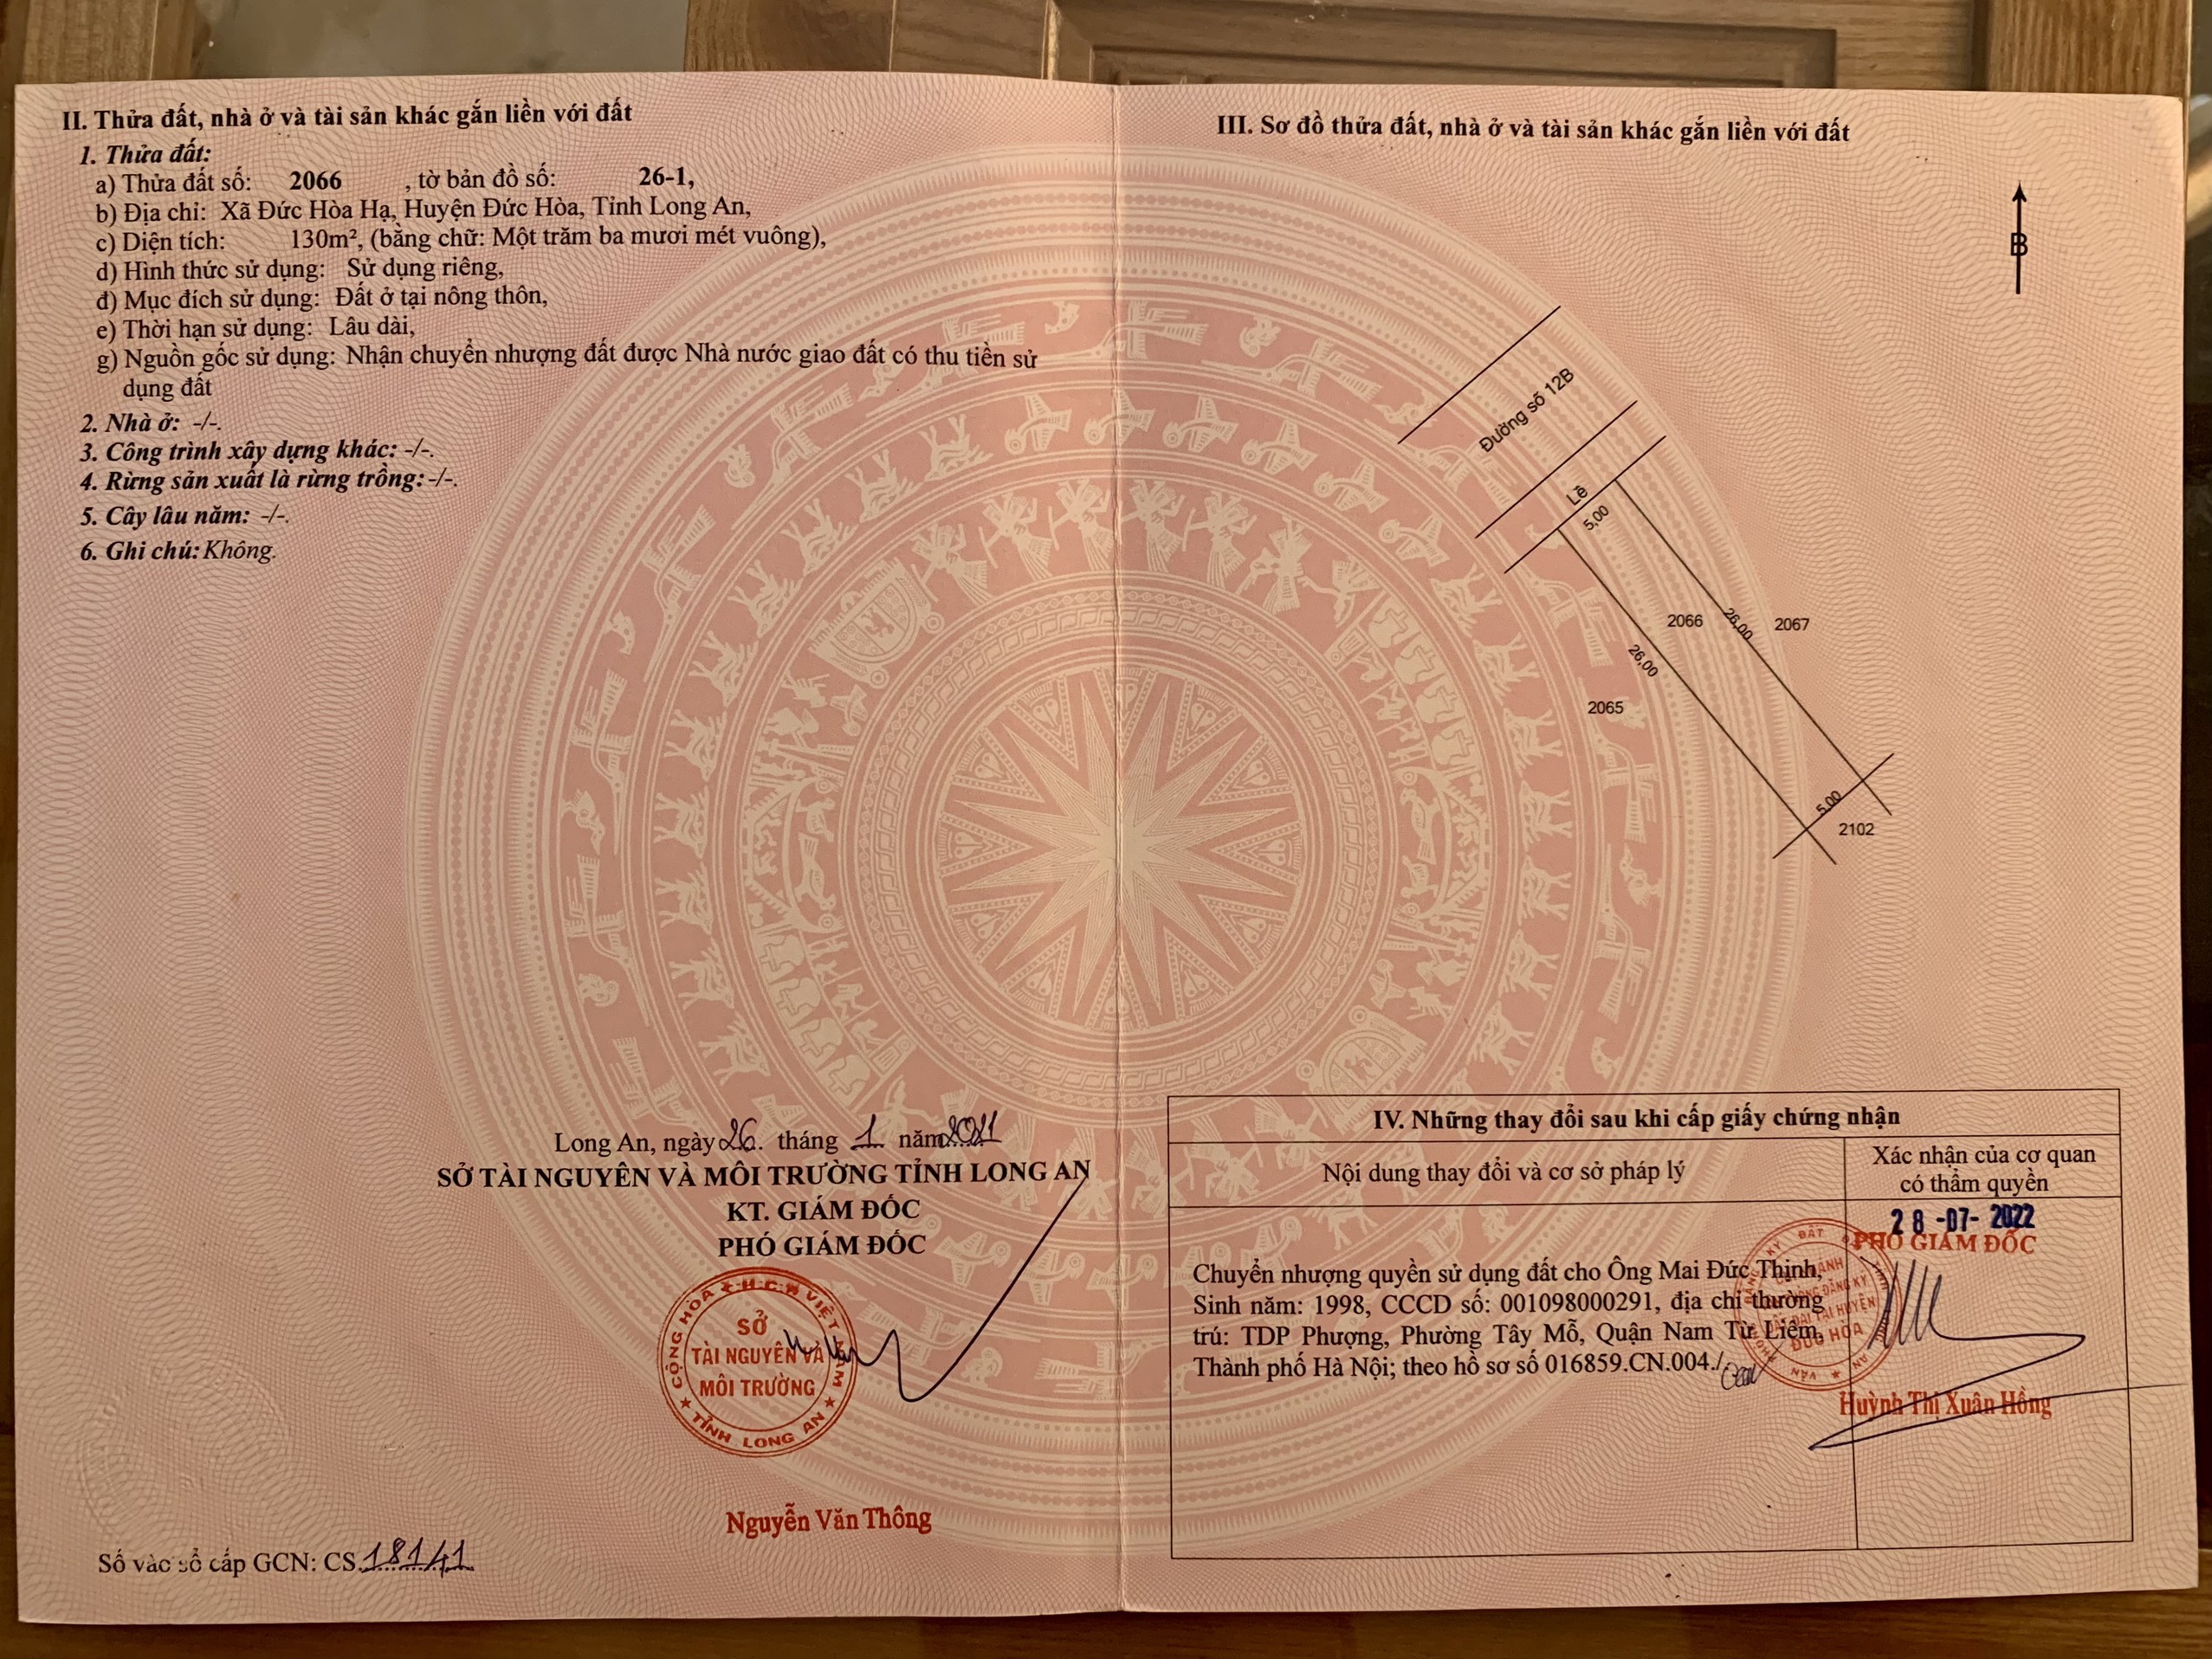 II. Thửa đất, nhà ở và tài sản khác gắn liền với đất
1. Thửa đất:
a) Thửa đất số: 2066 , tờ bản đồ số: 26-1,
b) Địa chỉ: Xã Đức Hòa Hạ, Huyện Đức Hòa, Tỉnh Long An,
c) Diện tích: 130m², (bằng chữ: Một trăm ba mươi mét vuông),
d) Hình thức sử dụng: Sử dụng riêng,
đ) Mục đích sử dụng: Đất ở tại nông thôn,
e) Thời hạn sử dụng: Lâu dài,
g) Nguồn gốc sử dụng: Nhận chuyển nhượng đất được Nhà nước giao đất có thu tiền sử
dụng đất
2. Nhà ở: -/-.
3. Công trình xây dựng khác: -/-.
4. Rừng sản xuất là rừng trồng: -/-.
5. Cây lâu năm: -/-.
6. Ghi chú: Không.
Long An, ngày 26. tháng 1 năm 2021
SỞ TÀI NGUYÊN VÀ MÔI TRƯỜNG TỈNH LONG AN
KT. GIÁM ĐỐC
PHÓ GIÁM ĐỐC
CỘNG HÒA X.H.C.N VIỆT NAM
SỞ
TÀI NGUYÊN VÀ
MÔI TRƯỜNG
★ TỈNH LONG AN ★
Nguyễn Văn Thông
Số vào sổ cấp GCN: CS.18141
III. Sơ đồ thửa đất, nhà ở và tài sản khác gắn liền với đất
B
Đường số 12B
Lề
5,00
2066
26,00
2067
26,00
2065
5,00
2102
IV. Những thay đổi sau khi cấp giấy chứng nhận
Nội dung thay đổi và cơ sở pháp lý
Xác nhận của cơ quan
có thẩm quyền
28 -07- 2022
PHÓ GIÁM ĐỐC
Chuyển nhượng quyền sử dụng đất cho Ông Mai Đức Thịnh,
Sinh năm: 1998, CCCD số: 001098000291, địa chỉ thường
trú: TDP Phượng, Phường Tây Mỗ, Quận Nam Từ Liêm,
Thành phố Hà Nội; theo hồ sơ số 016859.CN.004./.
ĐỨC HÒA
Huỳnh Thị Xuân Hồng